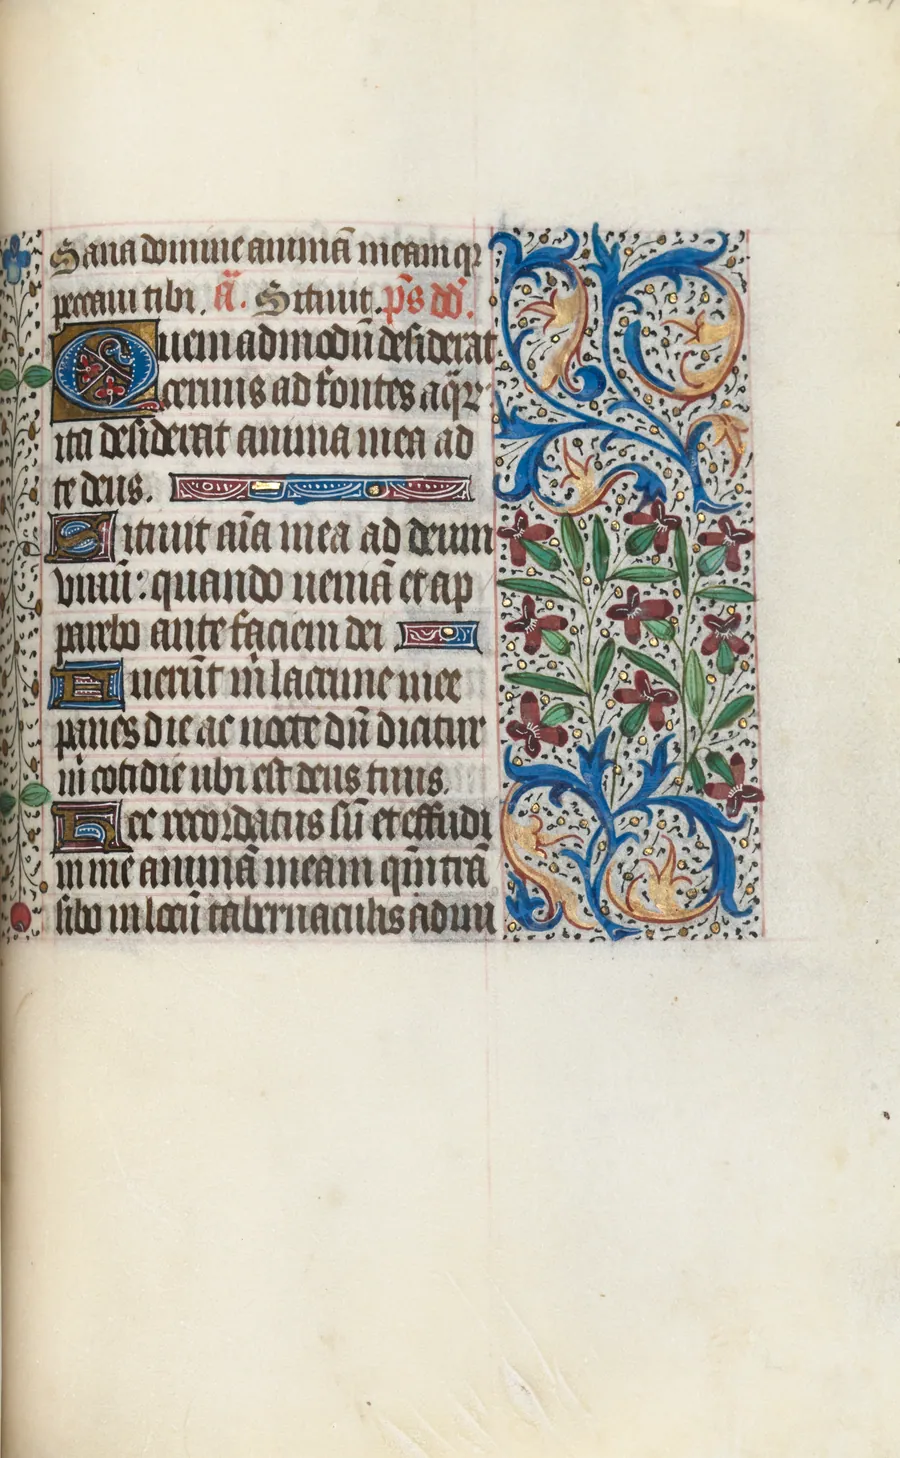 Sana domine animā meam qr
peccaui tibi. ā. Sitiuit. ps dd.
Quem admodū desiderat
ceruus ad fontes aq̄r
ita desiderat anima mea ad
te deus.
Sitiuit aīa mea ad deum
viuū: quando ueniā et ap
parebo ante faciem dei
Fuerūt m lacrime mee
panes die ac nocte dū dicitur
m cotidie ubi est deus tuus.
Hec recordatus sū et effudi
in me animā meam qm trā
sibo in locū tabernaculis admi